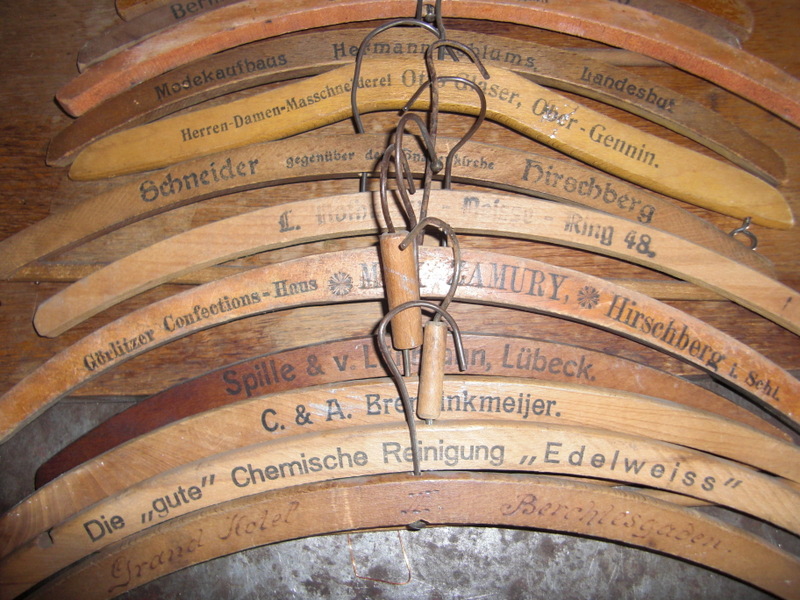 Modekaufhaus Hermann Blums, Landeshut.
Herren-Damen-Masschneiderei Otto Gläser, Ober-Gennin.
Schneider gegenüber der Hirschberg
L. Neisse - Ring 48.
Görlitzer Confections-Haus Hirschberg i. Schl.
Spille & v. Lübeck.
C. & A. Brenninkmeijer.
Die „gute" Chemische Reinigung „Edelweiss"
Grand Hotel Berchtesgaden.